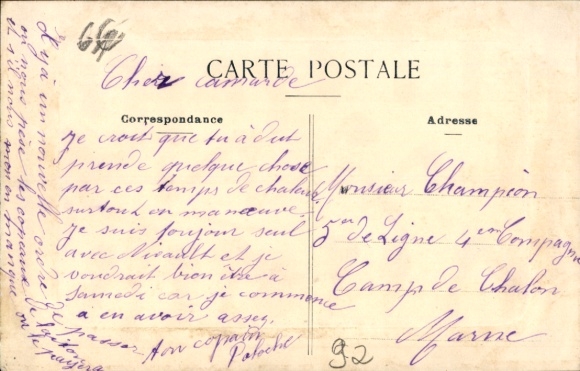 CARTE POSTALE
Cher camarde
Correspondance
Je croit que tu à dut
prende quelque chose
par ces temps de chaleur
surtout en manœuve.
Je suis toujour seul
avec Nivault et je
voudrait bien être à
samedi car je commence
a en avoir assez.
ton copain
Patoche
Il y à un nouvelle ordre de passer
Adresse
Monsieur Champion
5em de Ligne 4em Compagnie
Camp de Chalon
Marne
92